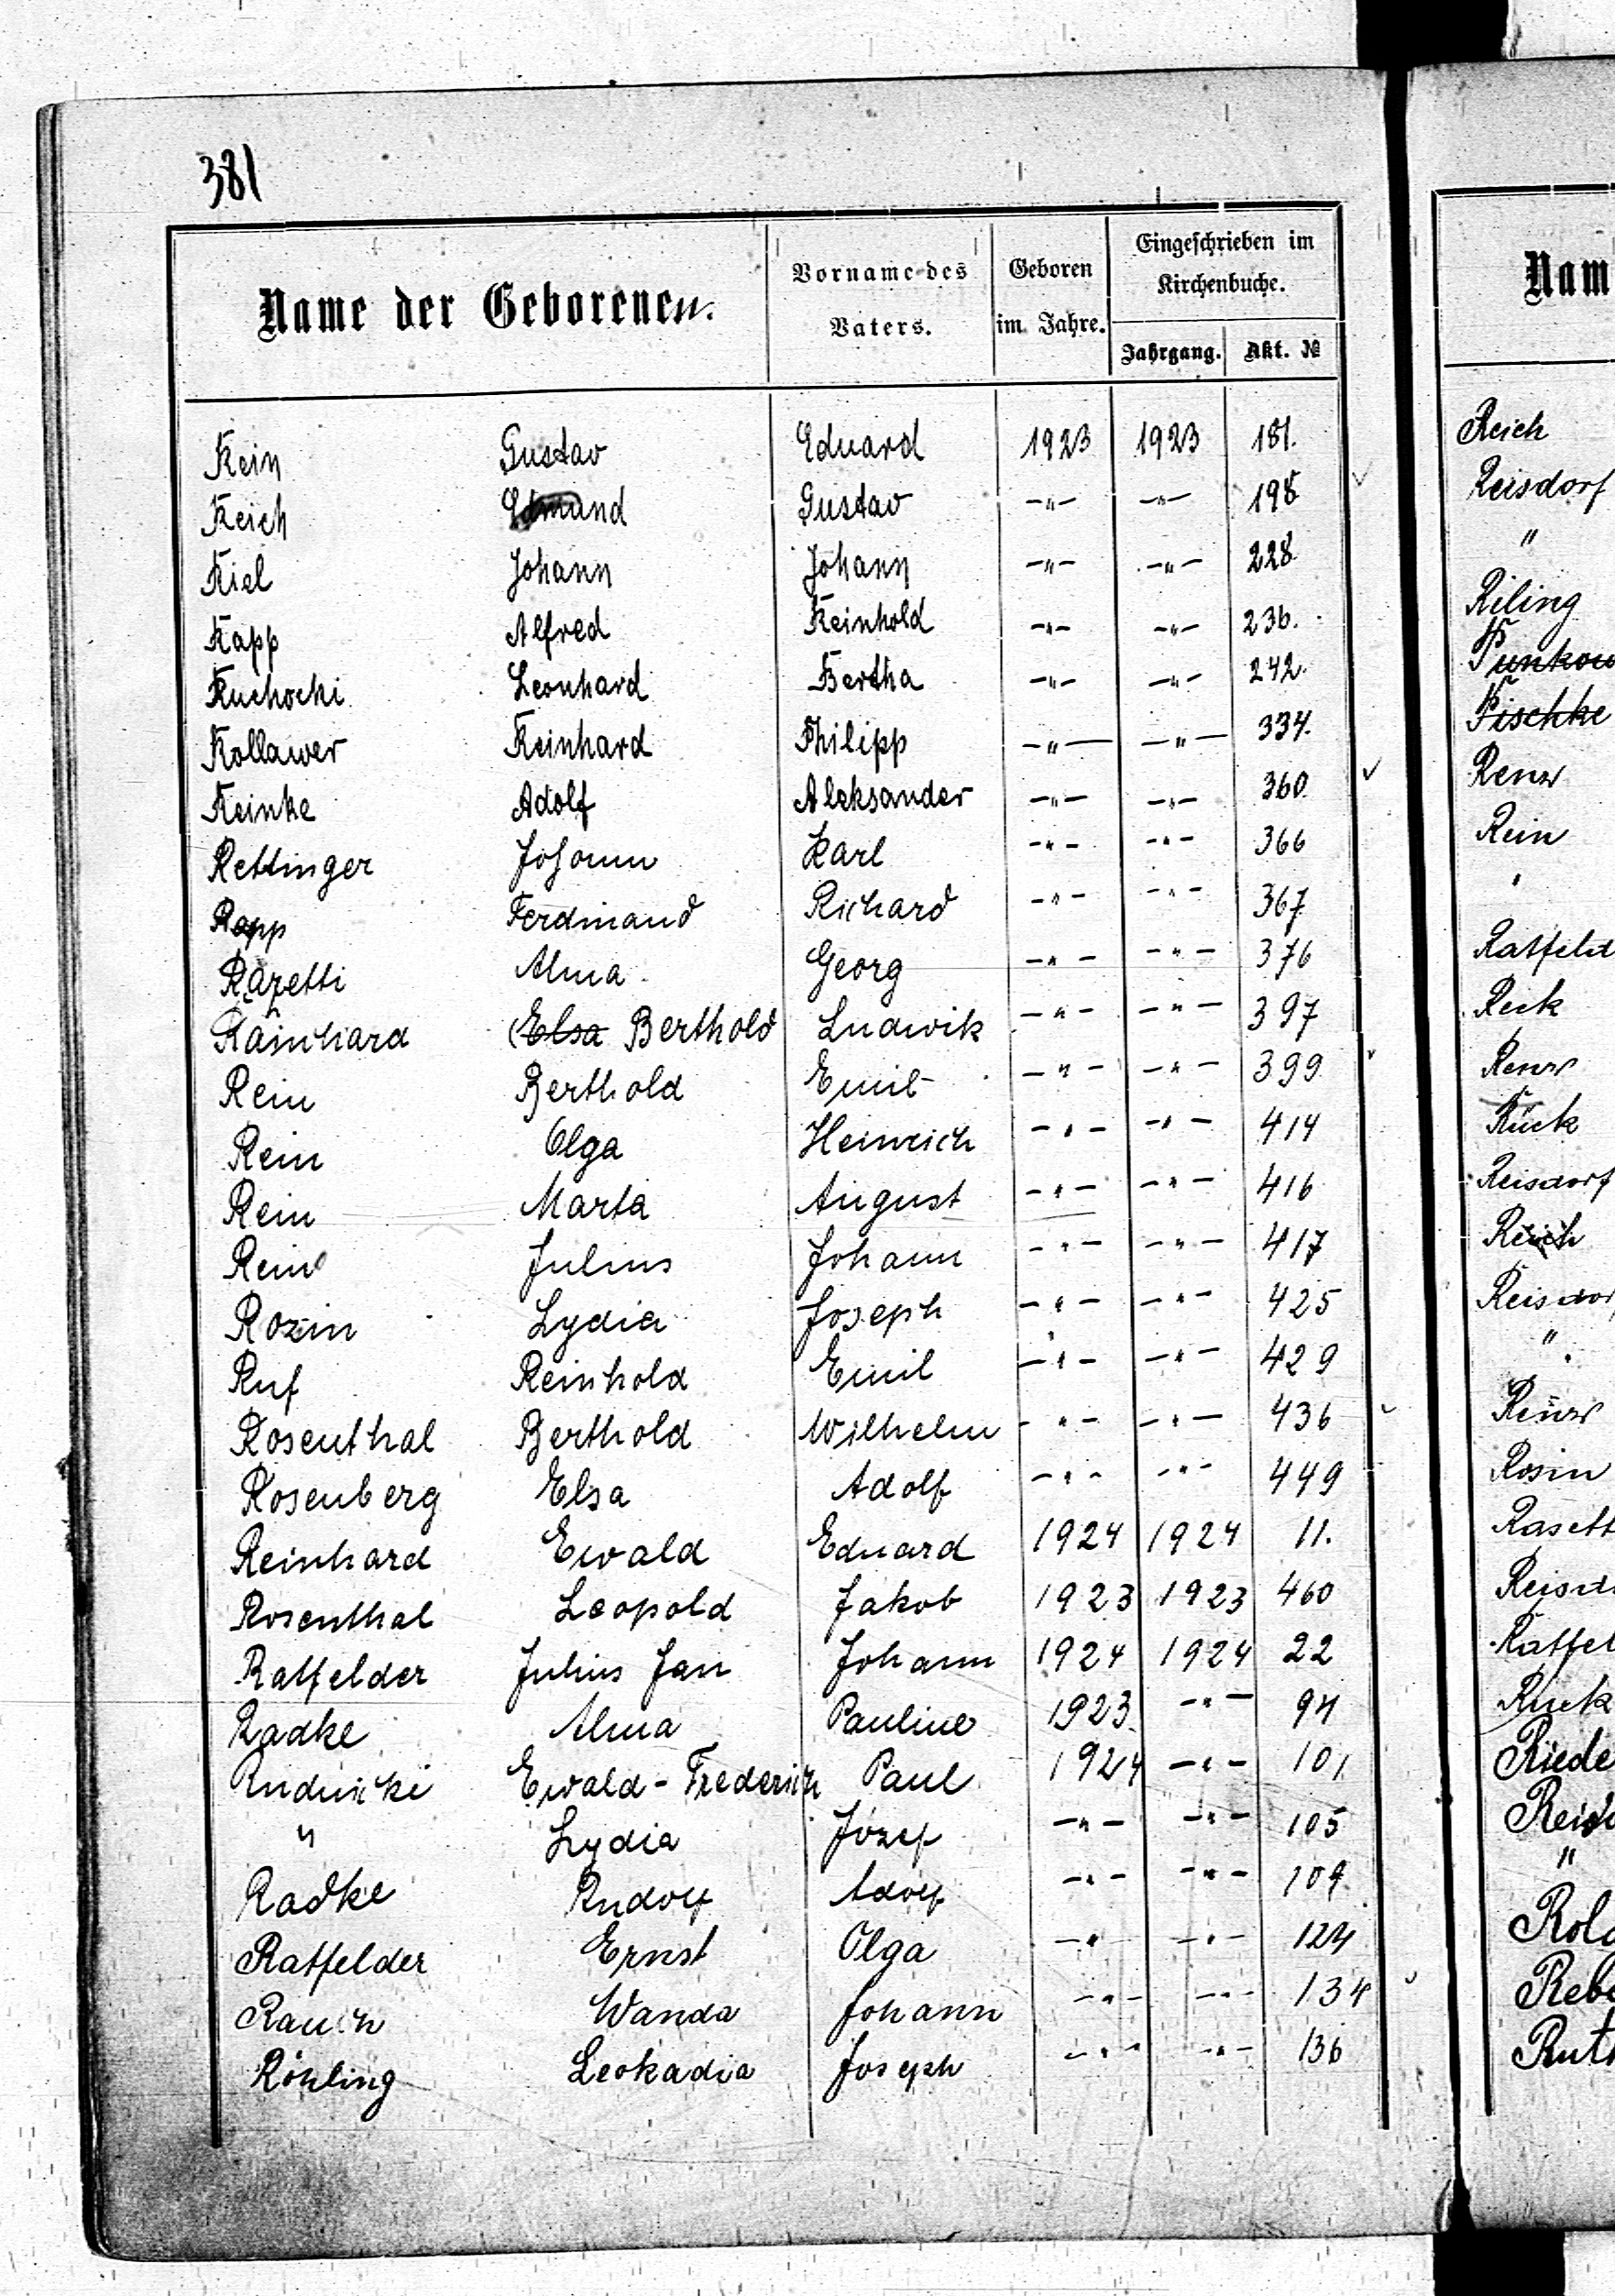 381
Name der Geborenen.
Vorname des Vaters.
Geboren im Jahre.
Eingeschrieben im Kirchenbuche.
Jahrgang. Akt. №
Rein Gustav Eduard 1923 1923 181.
Reich Edmund Gustav -"- -"- 198
Riel Johann Johann -"- -"- 228.
Rapp Alfred Reinhold -"- -"- 236.
Ruchocki Leonhard Bertha -"- -"- 242.
Rollawer Reinhard Philipp -"- -"- 334.
Reinke Adolf Aleksander -"- -"- 360.
Rettinger Johann Karl -"- -"- 366
Rapp Ferdinand Richard -"- -"- 367
Razetti Alma Georg -"- -"- 376
Rainhard (Elsa Berthold Ludwik -"- -"- 397
Rein Berthold Emil -"- -"- 399
Rein Olga Heinrich -"- -"- 414
Rein Marta August -"- -"- 416
Rein Julius Johann -"- -"- 417
Rozin Lydia Joseph -"- -"- 425
Ruf Reinhold Emil -"- -"- 429
Rosenthal Berthold Wilhelm -"- -"- 436
Rosenberg Elsa Adolf -"- -"- 449
Reinhard Ewald Eduard 1924 1924 11.
Rosenthal Leopold Jakob 1923 1923 460
Ratfelder Julius Jan Johann 1924 1924 22
Radke Alma Pauline 1923 -"- 94
Rudnicki Ewald-Frederich Paul 1924 -"- 101
" Lydia Józef -"- -"- 105
Radke Rudolf Adolf -"- -"- 109
Ratfelder Ernst Olga -"- -"- 124
Rauch Wanda Johann -"- -"- 134
Röhling Leokadia Joseph -"- -"- 136
Nam
Reich
Reisdorf
"
Riling
Punkow
Pischke
Renz
Rein
"
Ratfeld
Reck
Renz
Rück
Reisdorf
Reich
Reisdor
"
Renz
Rosin
Rasett
Reisd
Ratfel
Ruck
Riede
Reisd
"
Rol
Reb
Rut